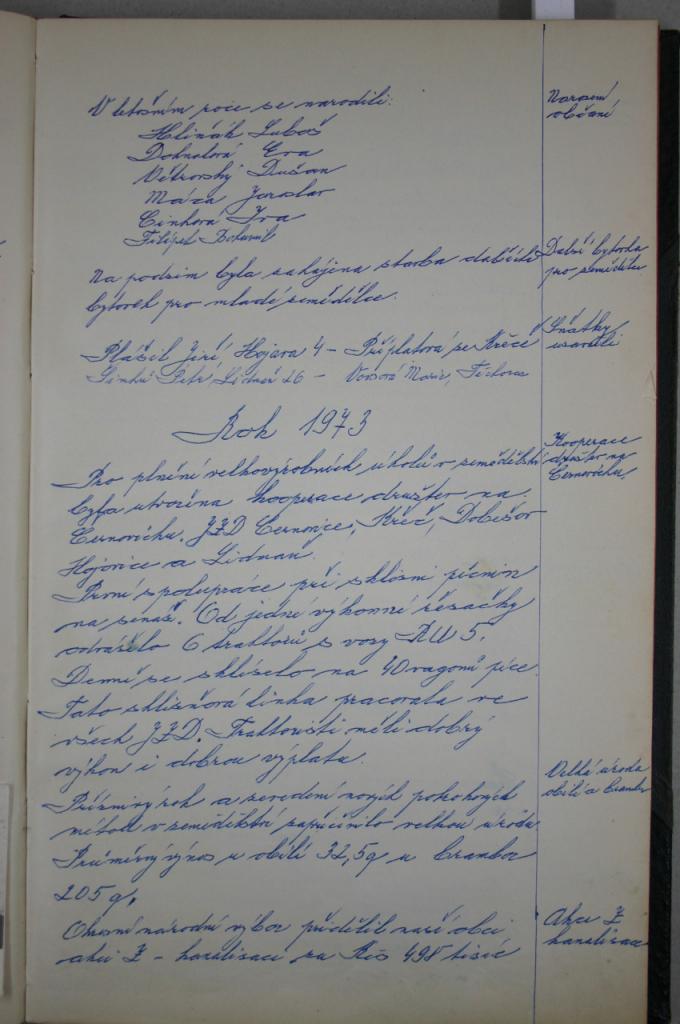 V letošním roce se narodili:
Narození
občané
Hlinák Luboš
Dohnalová Eva
Větrovský Dušan
Máca Jaroslav
Cinková Iva
Filípek Bohumil
Na podzim byla zahájena stavba dalších
bytovek pro mladé zemědělce.
Další bytovka
pro zemědělce
Plášil Jiří, Hojava 4 – Příplatová ze Křeč
Petr, Lidmaň 26 – Marie, Těchov
Sňatky
uzavřeli
Rok 1973
Pro plnění velkovýrobních úkolů v zemědělství
byla utvořena kooperace družstev na
Černovicku. JZD Černovice, Křeč, Dobešov
Hojovice a Lidmaň.
Kooperace
družstev na
Černovicku
První spolupráce při sklizni pícnin
na senáž. Od jedné výkonné řezačky
odváželo 6 traktorů s vozy RU 5.
Denně se sklízelo na 40 vagonů píce.
Tato sklizňová linka pracovala ve
všech JZD. Traktoristi měli dobrý
výkon i dobrou výplatu.
Příznivý rok a zavedení nových pokrokových
metod v zemědělství zapříčinilo velkou úrodu.
Průměrný výnos u obilí 32,5q u brambor
205 q.
Velká úroda
obilí a brambor
Okresní národní výbor přidělil naší obci
akci Z – kanalisaci za Kčs 498 tisíc
Akce Z
kanalisace